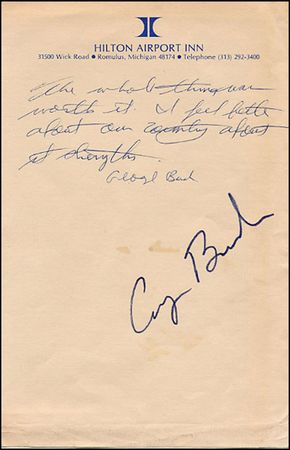 HILTON AIRPORT INN
31500 Wick Road ● Romulus, Michigan 48174 ● Telephone (313) 292-3400
The whole thing was
worth it. I feel better
about our country about
its strengths.
George Bush
Bush